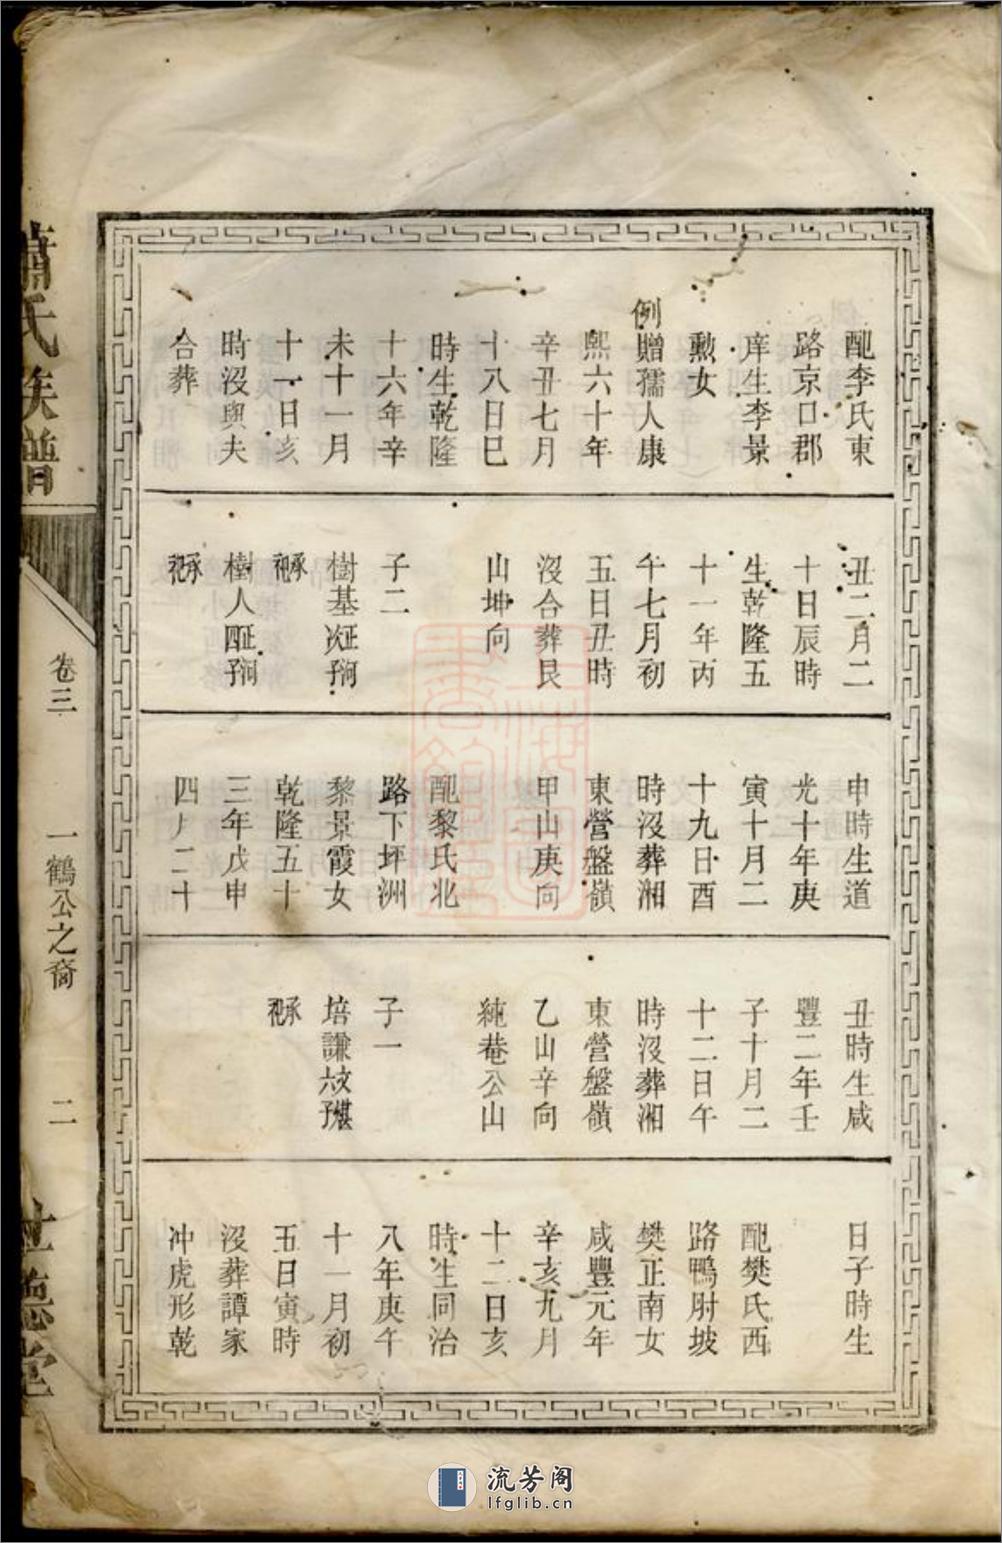 配李氏東
路京口郡
庠生李景
勲女
例贈孺人康
熙六十年
辛丑七月
十八日巳
時生乾隆
十六年辛
未十一月
十一日亥
時沒與夫
合葬
丑二月二
十日辰時
生乾隆五
十一年丙
午七月初
五日丑時
沒合葬艮
山坤向
子二
樹基次子
承祀
樹人四子
承祀
申時生道
光十年庚
寅十月二
十九日酉
時沒葬湘
東營盤嶺
甲山庚向
配黎氏北
路下坪洲
黎景霞女
乾隆五十
三年戊申
四月二十
丑時生咸
豐二年壬
子十月二
十二日午
時沒葬湘
東營盤嶺
乙山辛向
純菴公山
子一
培謙文堪六子
承祀
日子時生
配樊氏西
路鴨肘坡
樊正南女
咸豐元年
辛亥九月
十二日亥
時生同治
八年庚午
十一月初
五日寅時
沒葬譚家
冲虎形乾
蕭氏族譜
卷三
一鶴公之裔
二
世德堂
流芳阁
lfglib.cn